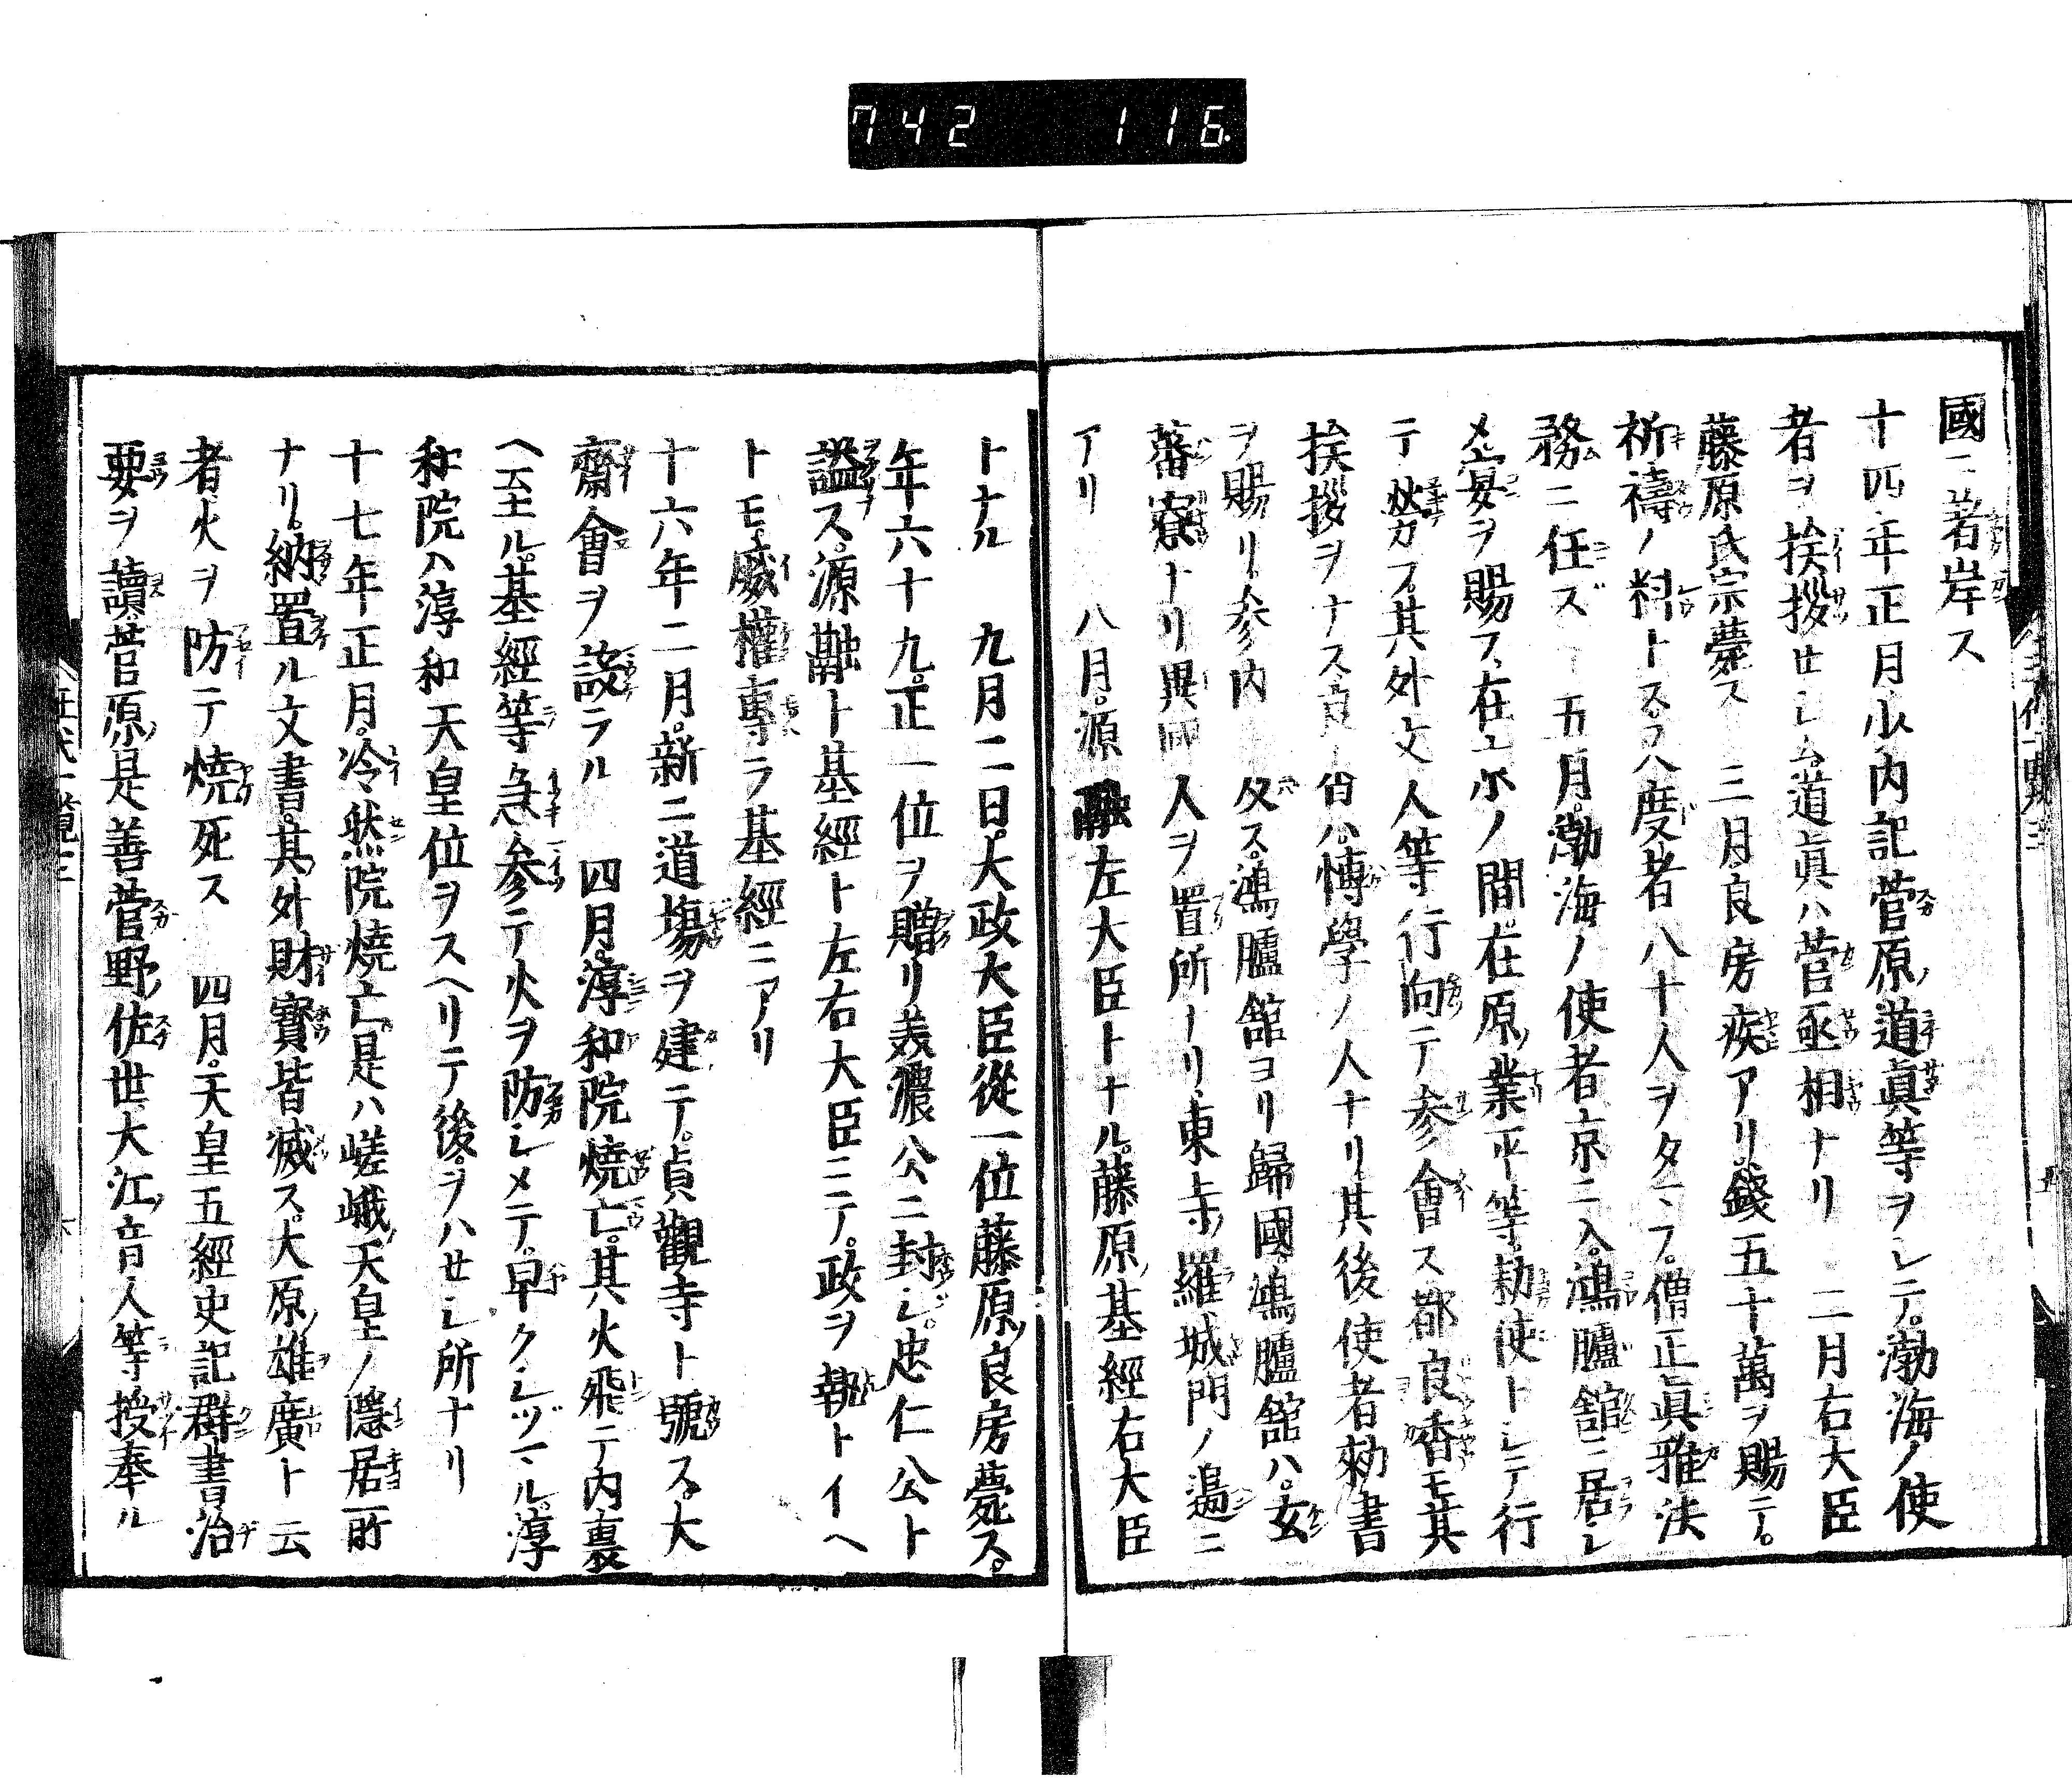 742 116
國ニ著岸ス
十四年正月少内記菅原道眞等ヲシテ渤海ノ使
者ヲ挨拶セシム道眞ハ菅丞相ナリ 二月右大臣
藤原氏宗薨ス 三月良房疾アリ錢五十萬ヲ賜テ
祈禱ノ料トス又八度者八十人ヲタマフ僧正眞雅法
務ニ任ズ 五月渤海ノ使者京ニ入鴻臚舘ニ居シ
メ宴ヲ賜フ在ノ間在原業平等勅使トシテ行
テ勞フ其外文人等行向テ參會ス都良香モ其
挨拶ヲナス良香ハ博學ノ人ナリ其後使者勅書
ヲ賜リ參内ス鴻臚舘ヨリ歸國鴻臚舘ハ玄
蕃寮ナリ異國人ヲ置所ナリ東寺羅城門ノ邊ニ
アリ 八月源融左大臣トナル藤原基經右大臣
トナル 九月二日大政大臣從一位藤原良房薨ス
年六十九正一位ヲ贈リ美濃公ニ封シ忠仁公ト
謚ス源融ト基經ト左右大臣ニテ政ヲ執トイヘ
トモ威權專ラ基經ニアリ
十六年二月新ニ道塲ヲ建テ貞觀寺ト號ス大
齋會ヲ設ラル 四月淳和院燒亡其火飛テ内裏
ヘ至ル基經等急參テ火ヲ防シメテ早クシヅマル淳
和院ハ淳和天皇位ヲスヘリテ後ヲハセシ所ナリ
十七年正月冷然院燒亡是ハ嵯峨天皇ノ隱居所
ナリ納置ル文書其外財寶皆滅ス大原雄廣ト云
者火ヲ防テ燒死ス 四月天皇五經史記群書治
要ヲ讀菅原是善菅野佐世大江音人等授奉ル